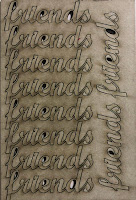 friends
friends
friends
friends
friends
friends
friends
friends
friends friends